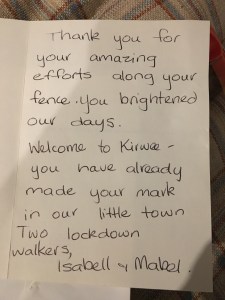 Thank you for
your amazing
efforts along your
fence. You brightened
our days.
Welcome to Kirwee -
you have already
made your mark
in our little town
Two lockdown
walkers,
Isabell & Mabel.